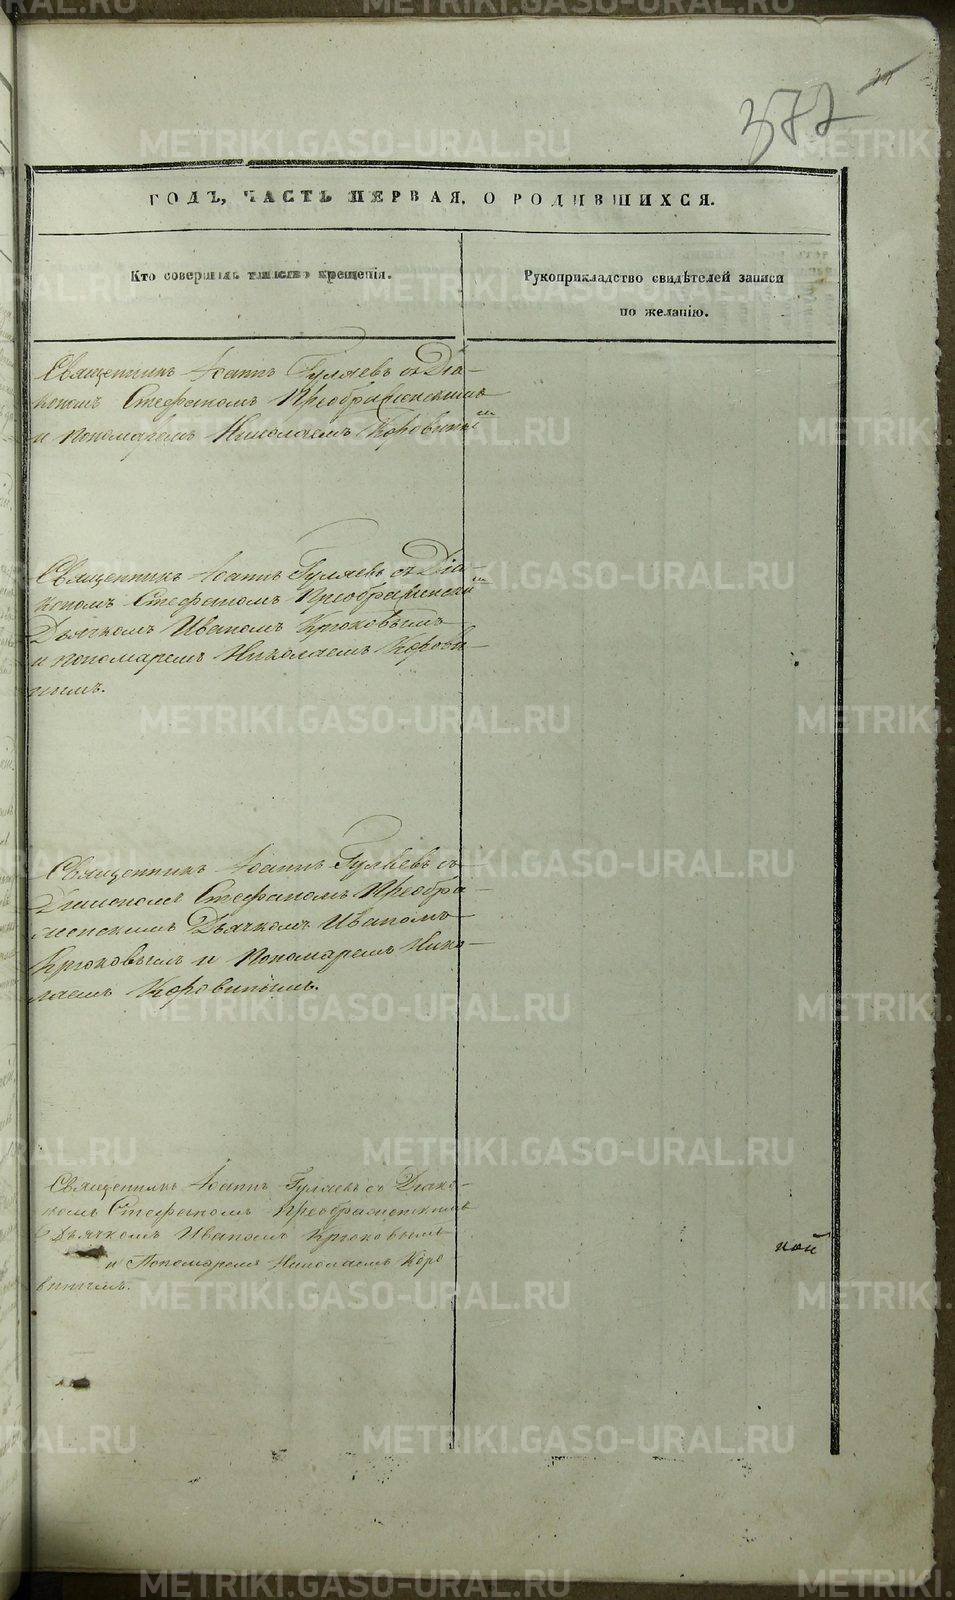 377
ГОДЪ, ЧАСТЬ ПЕРВАЯ, О РОДИВШИХСЯ.
Кто совершалъ таинство крещенія.
Рукоприкладство свидѣтелей записи
по желанію.
Священникъ Іоаннъ Гуляевъ съ Діа-
кономъ Стефаномъ Преображенскимъ
и пономаремъ Николаемъ Коровинымъ
Священникъ Іоаннъ Гуляевъ съ Діа-
кономъ Стефаномъ Преображенскимъ
Дьячкомъ Иваномъ Крюковымъ
и пономаремъ Николаемъ Корови-
нымъ.
Священникъ Іоаннъ Гуляевъ съ
Діакономъ Стефаномъ Преобра-
женскимъ Дьячкомъ Иваномъ
Крюковымъ и Пономаремъ Нико-
лаемъ Коровинымъ.
Священникъ Іоаннъ Гуляевъ съ Діако-
номъ Стефаномъ Преображенскимъ
Дьячкомъ Иваномъ Крюковымъ
и Пономаремъ Николаемъ Коро-
винымъ.
METRIKI.GASO-URAL.RU